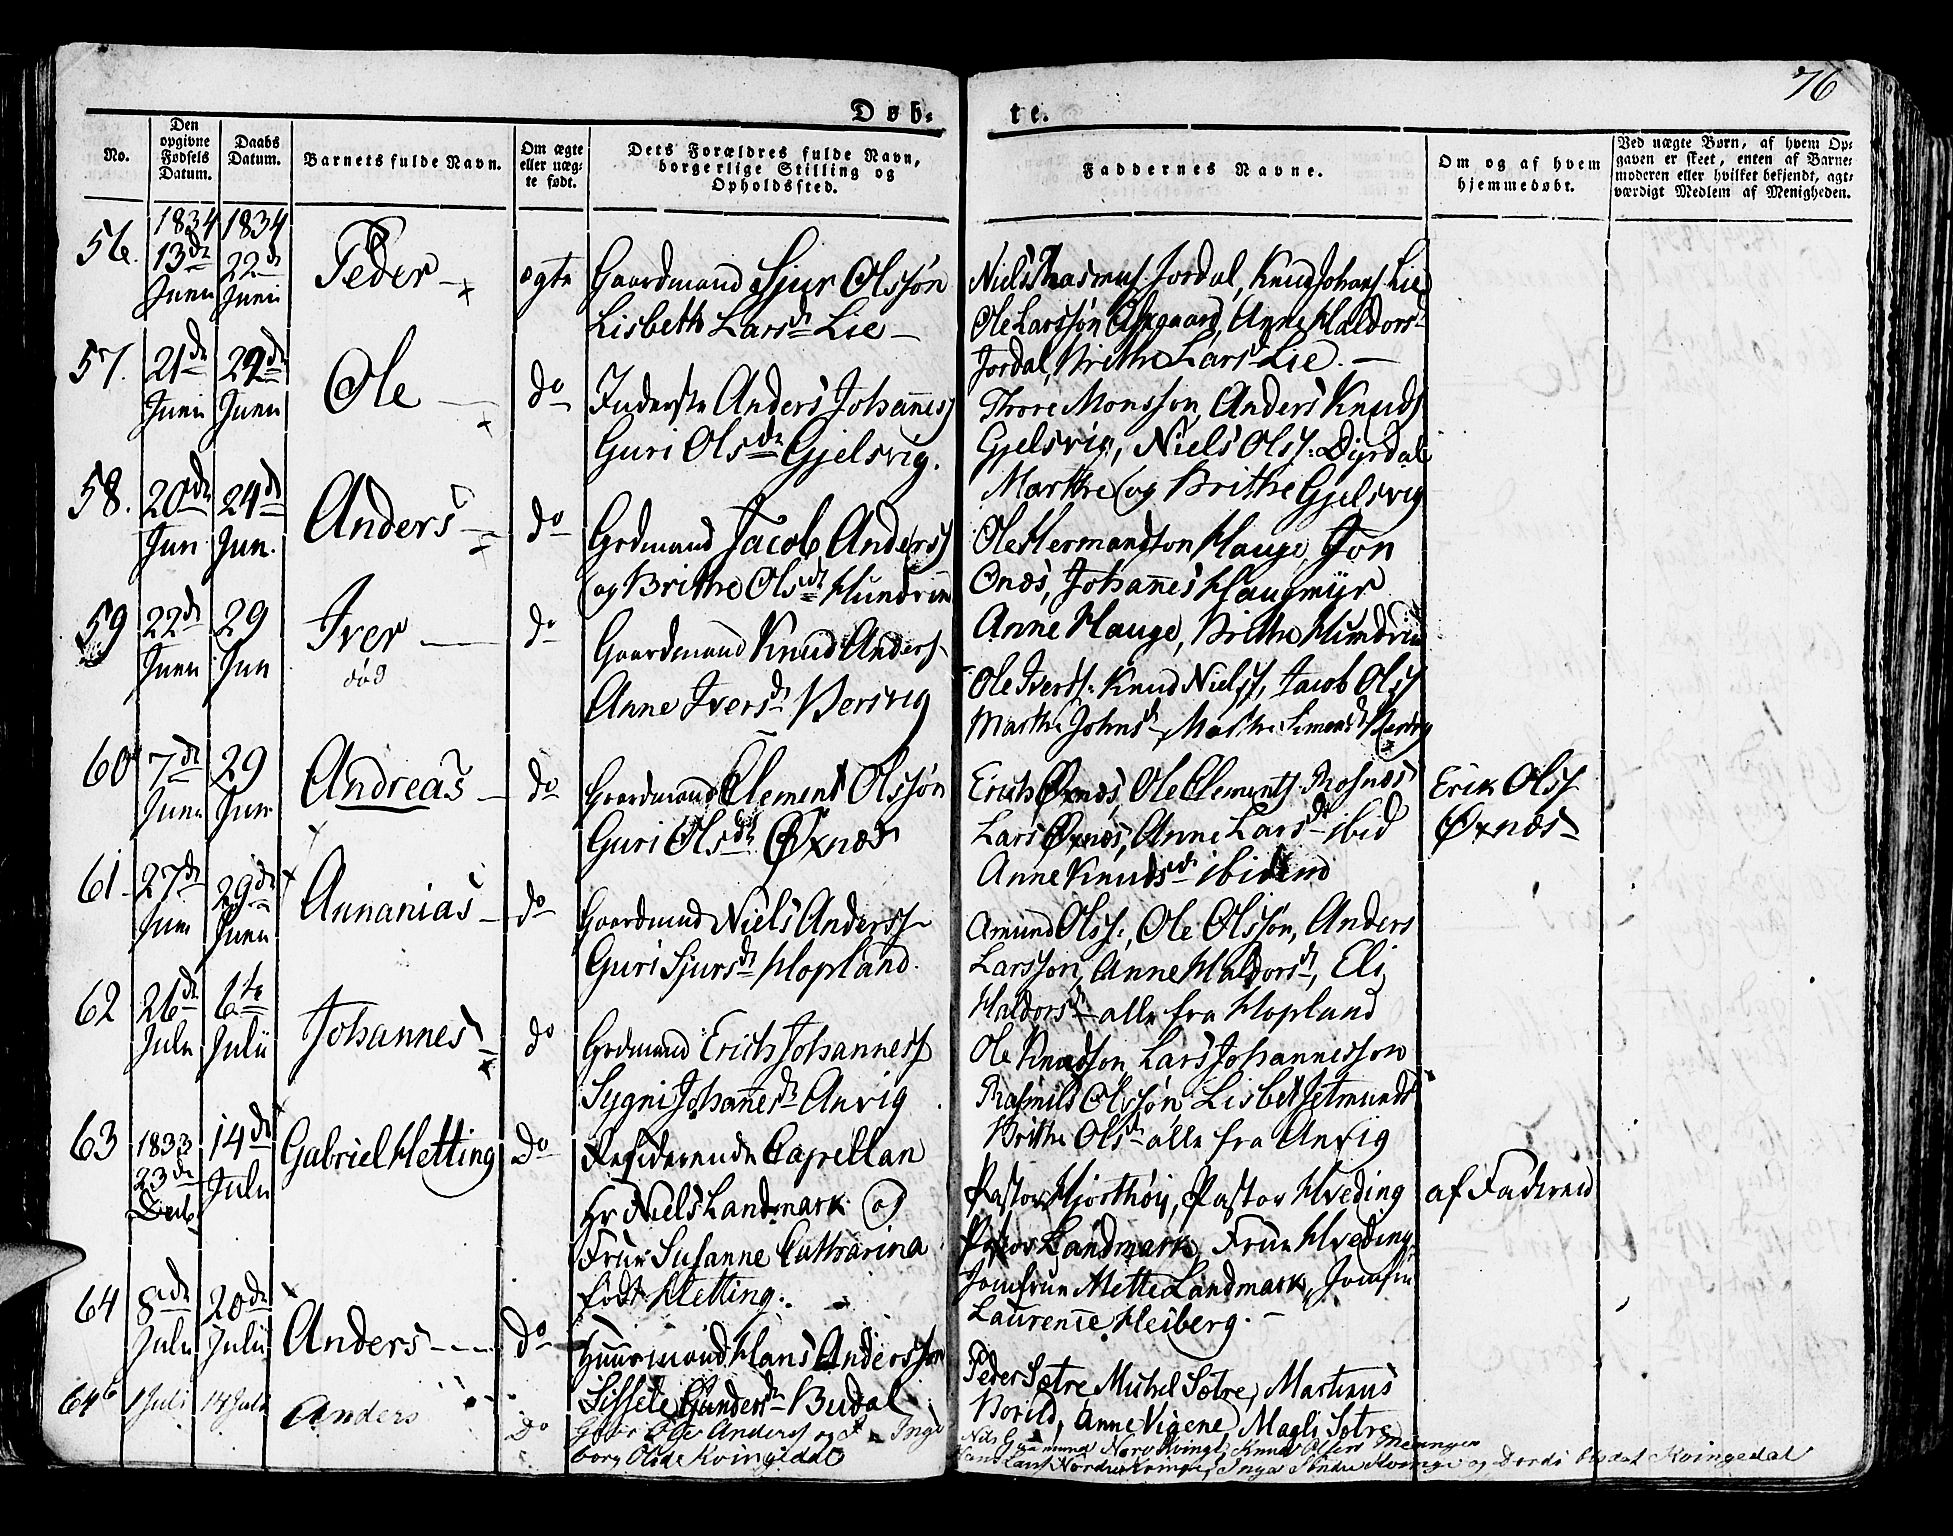 76
Døb-
te.
No.
Den opgivne Fødsels Datum.
Daabs Datum.
Barnets fulde Navn.
Om ægte eller uæg-te født.
Dets Forældres fulde Navn, borgerlige Stilling og Opholdssted.
Faddernes Navne.
Om og af hvem hjemmedøbt.
Ved uægte Børn, af hvem Op-gaven er skeet, enten af Barne-moderen eller hvilket bekjendt, agt-værdigt Medlem af Menigheden.
56. 1834 13de Junii 1834 22de Junii Peder ægte
Gaardmand Sjur Olssøn
Lisbeth Larsd. Lie
Jordal, Knud Johans. Lie
Ole Larssøn Anne Haldors-
Jordal, Brithe Larsd. Lie.
57. 21de Junii 29de Junii Ole do
Inderste Anders Johannes
Guri Olsd. Gjelsvig.
Thore Monsson, Anders Knuds
Gjelsvig, Niels Ols. Dyrdal
Marthe og Brithe Gjelsvig
58. 20de Jun 24de Jun. Anders do
Grdmand Jacob Anders
og Brithe Olsd. Hundrin
Ole Hermandson Hauge, Jon
Onæs, Johannes Haugmyr
Anne Hauge, Brithe Hundrin
59 22de Junii 29 Jun Iver død do
Gaardmand Knud Anders
Anne Iversd. Bersvig
Ole Iverss. Knud Nielss, Jacob Olss
Marthe Johnsd. Marthe Simonsd.
60 7de Junii 29 Jun Andreas do
Gaardmand Clement Olssøn
Guri Olsd. Øxnæs
Erich Øxnæs, Ole Clements.
Lars Øxnæs, Anne Larsd. ibid
Anne Knudsd. ibidem
Erik Olss
Øxnæs
61 27de Juni 29de Junii Annanias do
Gaardmand Niels Anderss
Guri Sjursd. Hopland.
Amund Olss., Ole Olssøn, Anders
Larsson, Anne Haldorsd., Eli
Haldorsd. alle fra Hopland
62 26de 6te Julii Johannes do
Grdmand Erich Johanness
Sygni Johannesd. Anvig
Ole Knudson, Lars Johannesson
Olssøn, Lisbet Jetmunds
Brithe Olsd. alle fra Anvig
63 1833 23de Decb. 14de Julii Gabriel Hetting do
Residerende Capellan
Hr Niels Landmark og
Frue Susanne Catharina
født Hetting.
Pastor Hjorthøy, Pastor Hveding
Pastor Landmark, Frue Hveding
Jomfrue Mette Landmark, Jomfru
Laurence Heiberg.
af Faderen
64 8de Julii 20de Julii Anders do
Huusmand Hans Andersson
Budal
Peder Sætre, Michel Sætre, Martinus
Borild, Anne Vigene, Magli Sætre
64b 1 Juli 14 Juli Anders do
Gbr. Ole Anders og Inge
borg Olsd. Kvingedal
Knud Olsen
og Dordi Olsdat Kvingedal